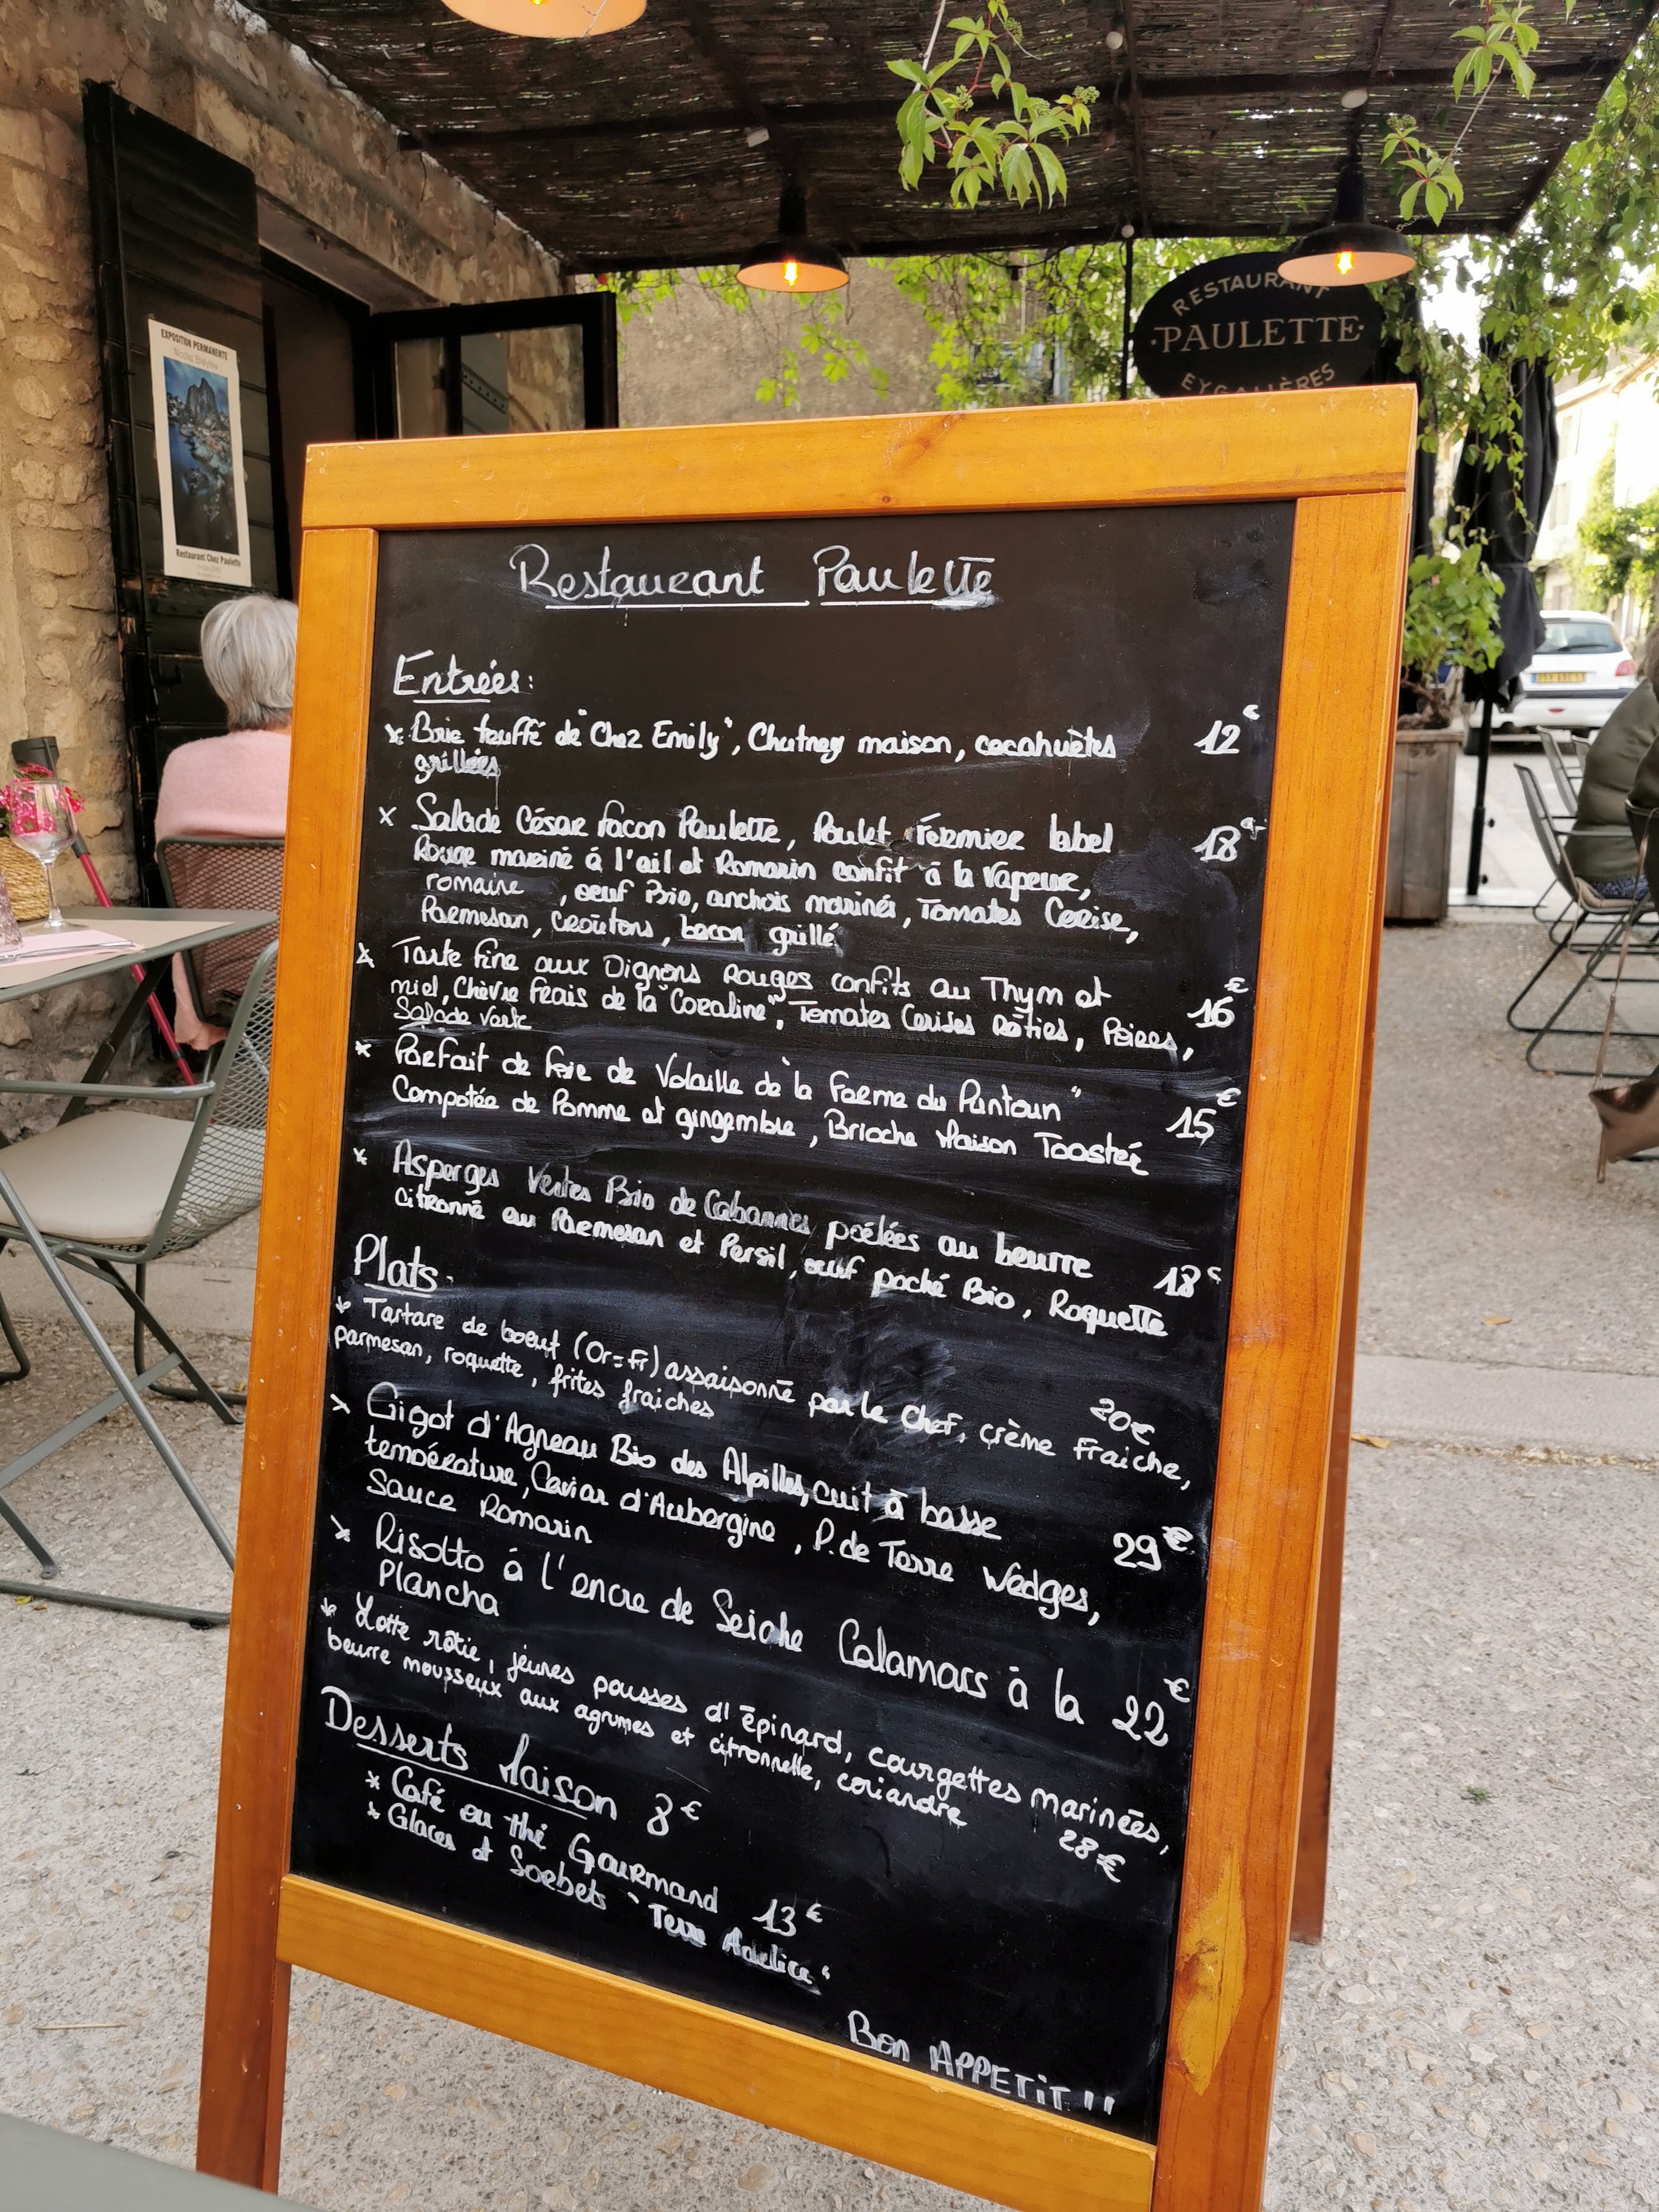 RESTAURANT
·PAULETTE·
EYGALIÈRES
EXPOSITION PERMANENTE
Restaurant Chez Paulette
Restaurant Paulette
Entrées:
x Brie truffé de "Chez Emily", Chutney maison, cacahuètes 12€
grillées
x Salade César façon Paulette, Poulet Fermier label 18€
Rouge mariné à l'ail et Romarin confit à la Vapeur,
romaine , oeuf Bio, anchois marinés, Tomates Cerise,
Parmesan, Croûtons, bacon grillé
x Tarte fine aux Oignons Rouges confits au Thym et 16€
miel, Chèvre Frais de la "Coraline", Tomates Cerises Rôties, Poires,
Salade Verte
x Parfait de foie de Volaille de "la Ferme du Pantoun" 15€
Compotée de Pomme et gingembre, Brioche Maison Toasté
x Asperges Vertes Bio de Cabannes poélées au beurre 18€
citronné au Parmesan et Persil, oeuf poché Bio, Roquette
Plats:
x Tartare de boeuf (Or=Fr) assaisonné par le Chef, crème Fraiche, 20€
parmesan, roquette, frites fraiches
x Gigot d'Agneau Bio des Alpilles, cuit à basse 29€
température, Caviar d'Aubergine, P. de Terre Wedges,
Sauce Romarin
x Risotto à l'encre de Seiche Calamars à la 22€
Plancha
x Lotte rôtie, jeunes pousses d'épinard, courgettes marinées,
beurre mousseux aux agrumes et citronnelle, coriandre 28€
Desserts Maison 8€
x Café ou thé Gourmand 13€
x Glaces et Sorbets "Terre Adelice"
BON APPETIT !!